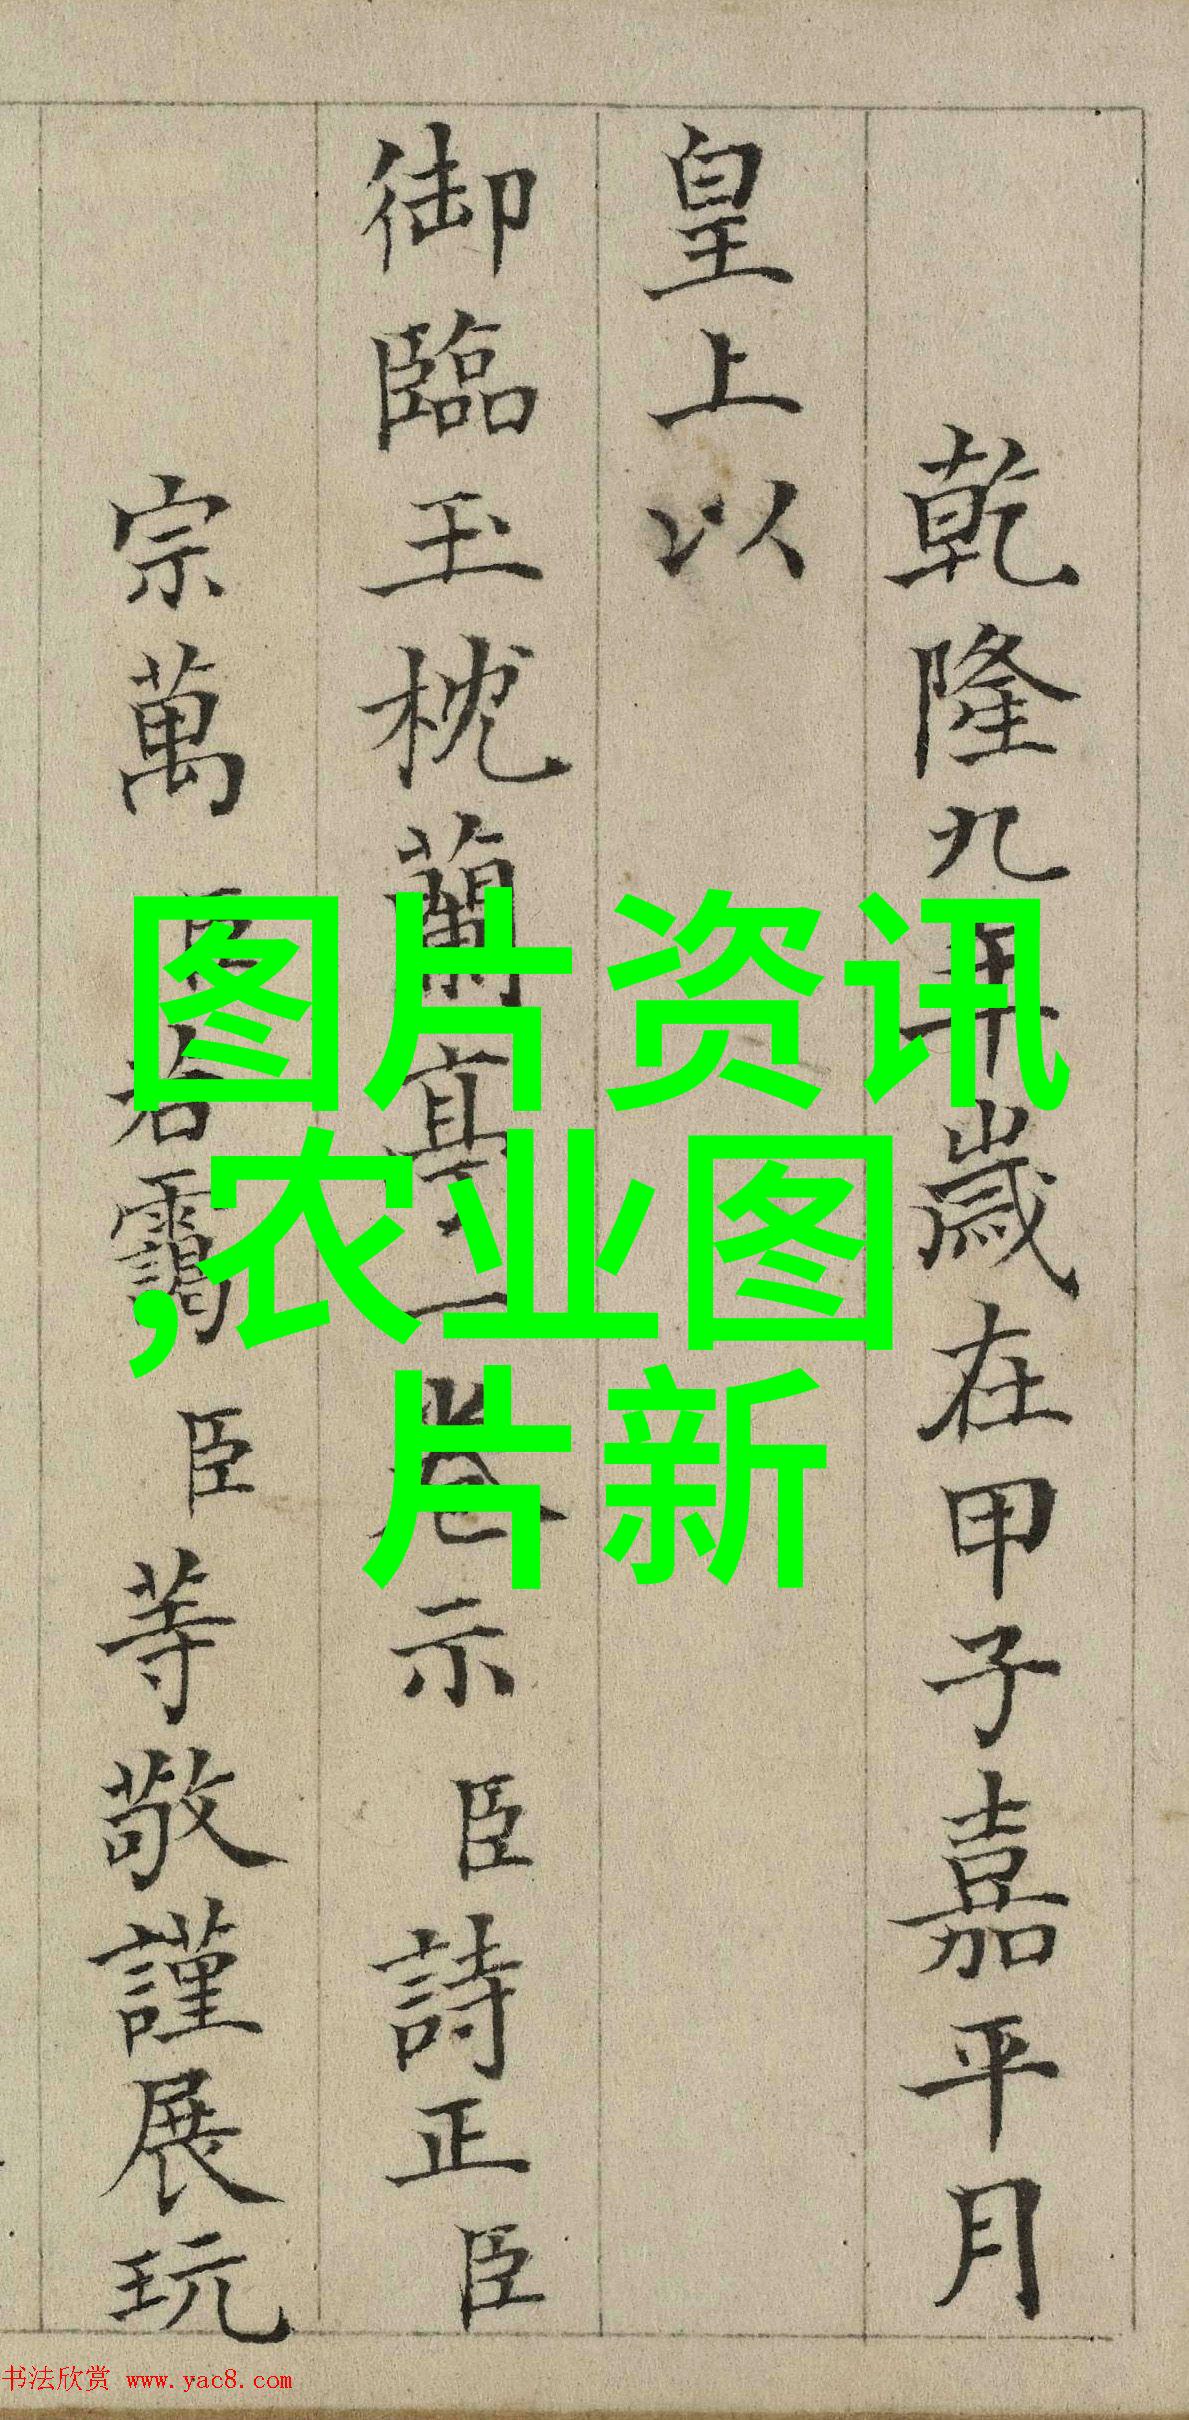 乾隆九年歲在甲子嘉平月
皇上以
御臨玉枕蘭亭一卷示臣詩正臣
宗萬臣若靄臣等敬謹展玩
图片资讯
,农业图
片新
书法欣赏 www.yac8.com